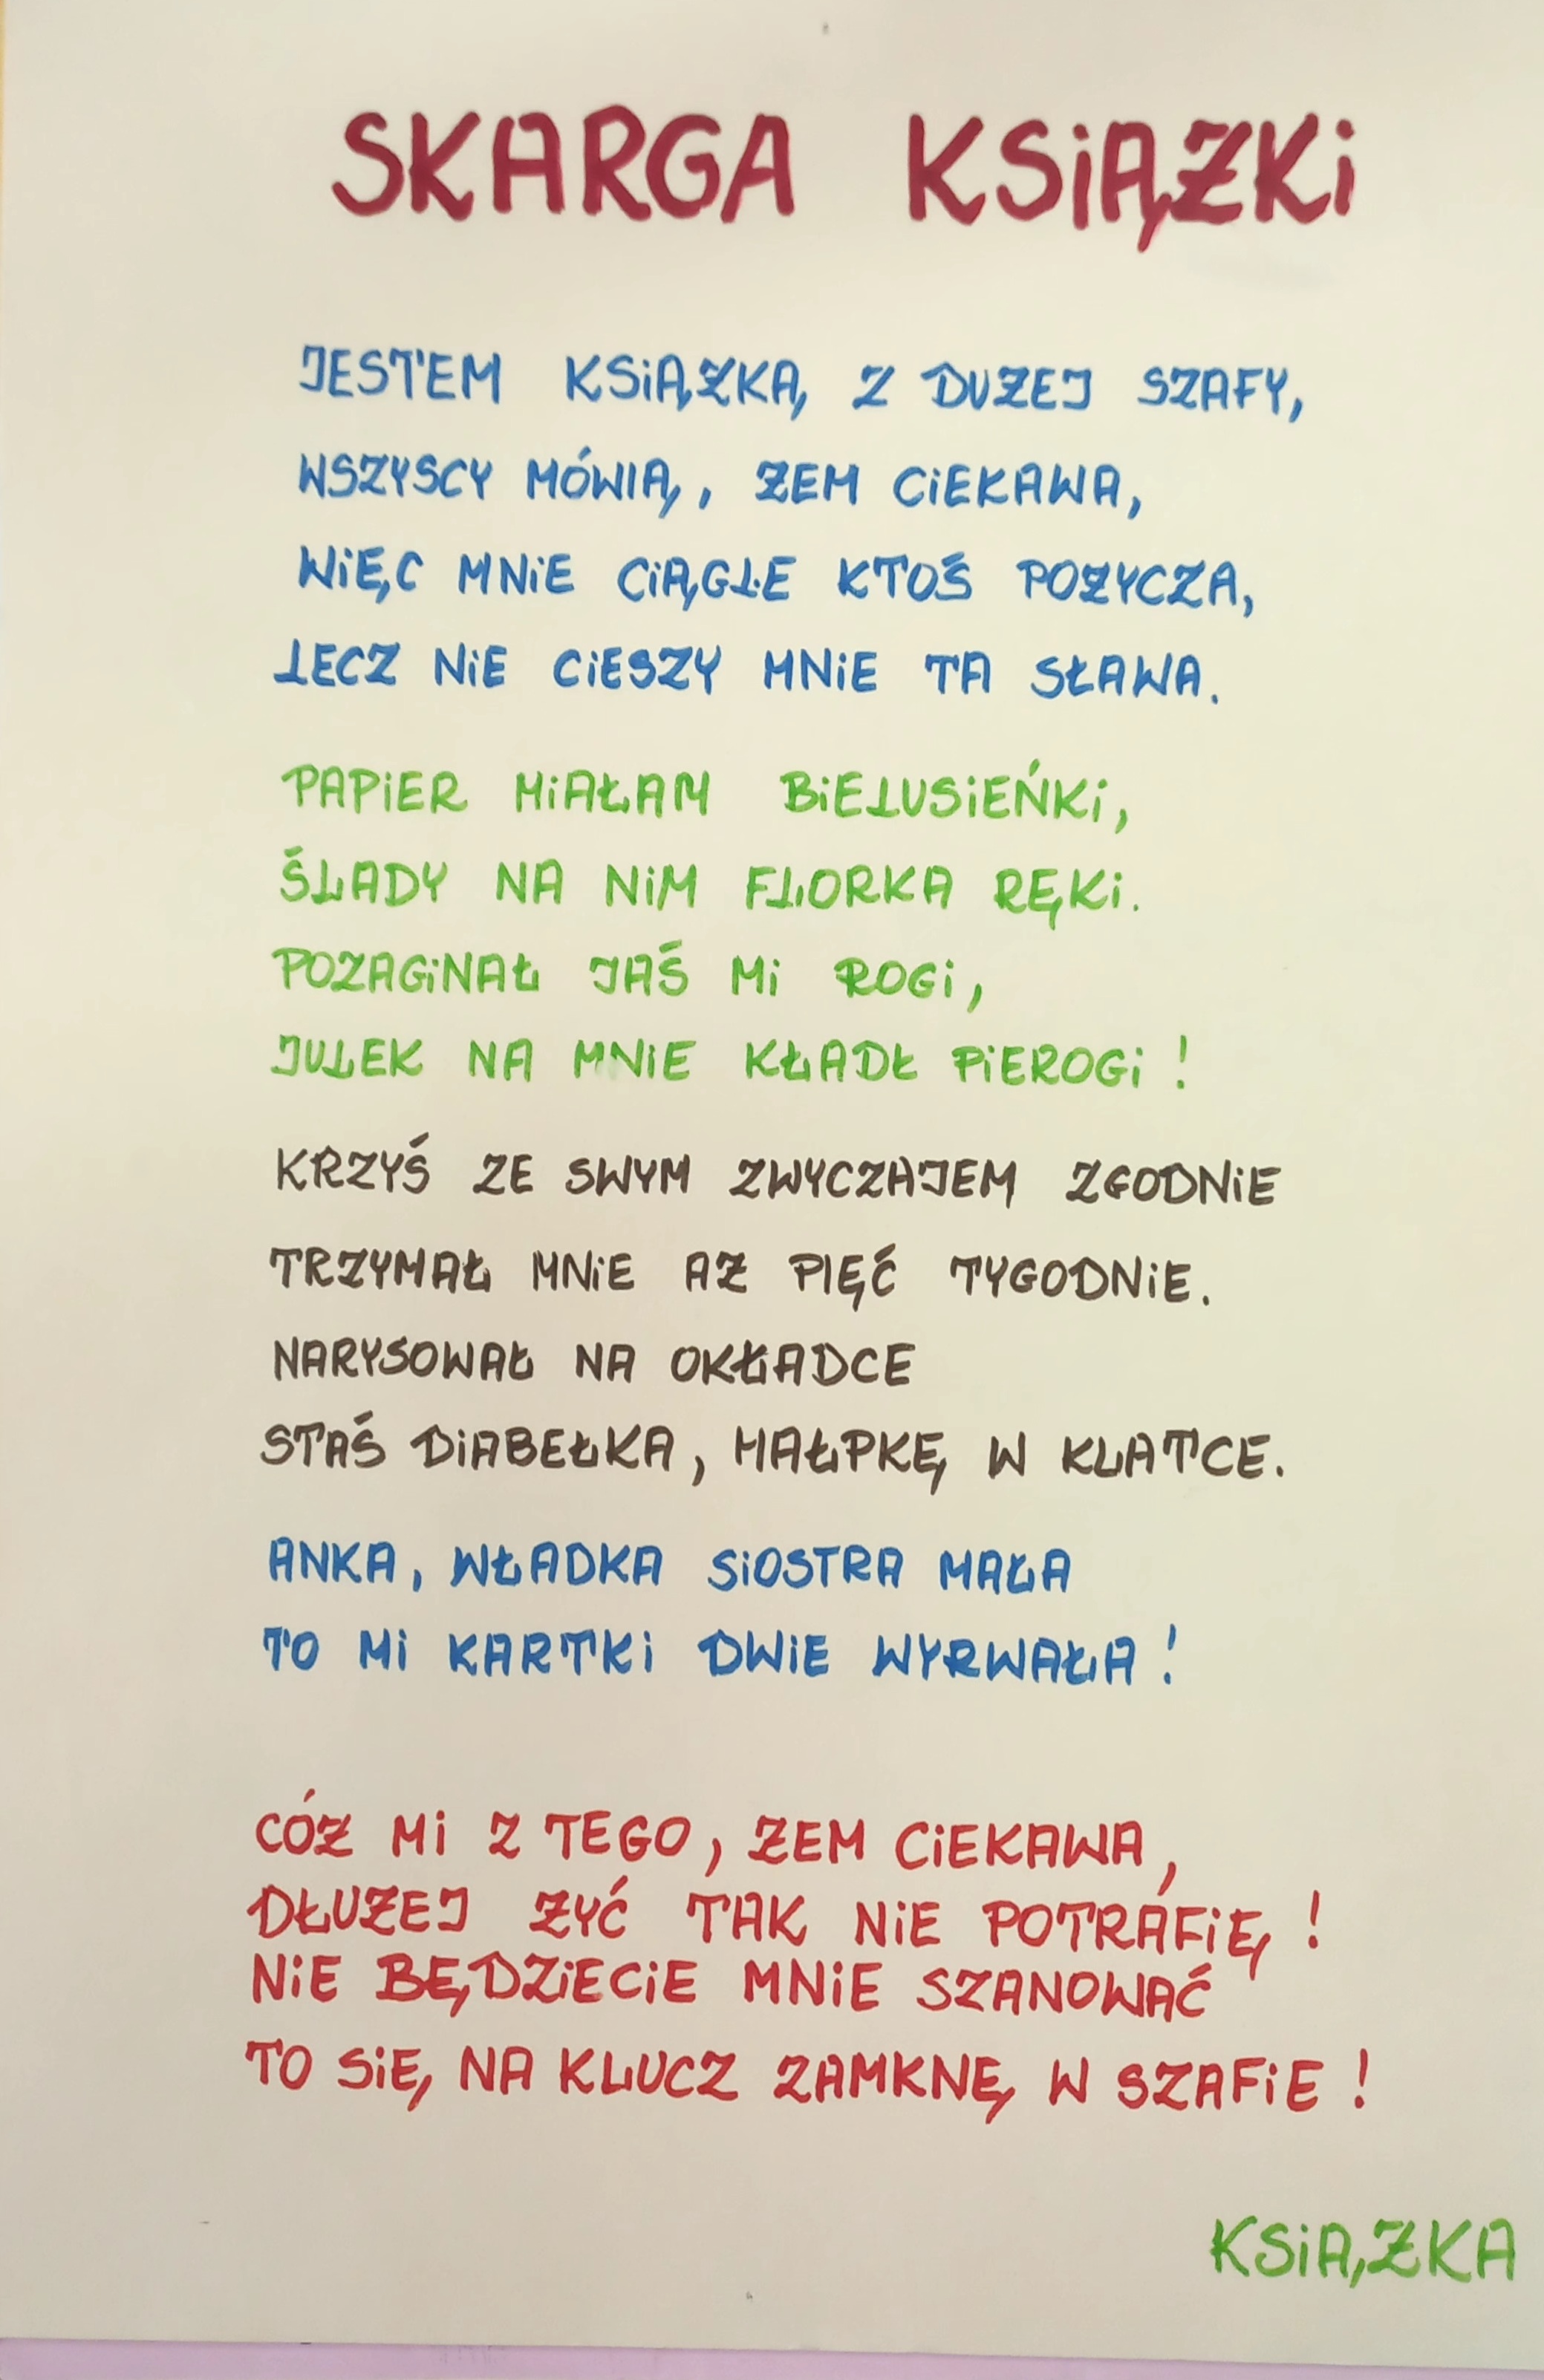 SKARGA KSIĄŻKI
JESTEM KSIĄŻKĄ Z DUŻEJ SZAFY,
WSZYSCY MÓWIĄ, ŻEM CIEKAWA,
WIĘC MNIE CIĄGLE KTOŚ POŻYCZA,
LECZ NIE CIESZY MNIE TA SŁAWA.
PAPIER MIAŁAM BIELUSIEŃKI,
ŚLADY NA NIM FLORKA RĘKI.
POZAGINAŁ JAŚ MI ROGI,
JULEK NA MNIE KŁADŁ PIEROGI!
KRZYŚ ZE SWYM ZWYCZAJEM ZGODNIE
TRZYMAŁ MNIE AŻ PIĘĆ TYGODNIE.
NARYSOWAŁ NA OKŁADCE
STAŚ DIABEŁKA, MAŁPKĘ W KLATCE.
ANKA, WŁADKA SIOSTRA MAŁA
TO MI KARTKI DWIE WYRWAŁA!
CÓŻ MI Z TEGO, ŻEM CIEKAWA,
DŁUŻEJ ŻYĆ TAK NIE POTRAFIĘ!
NIE BĘDZIECIE MNIE SZANOWAĆ
TO SIĘ NA KLUCZ ZAMKNĘ W SZAFIE!
KSIĄŻKA